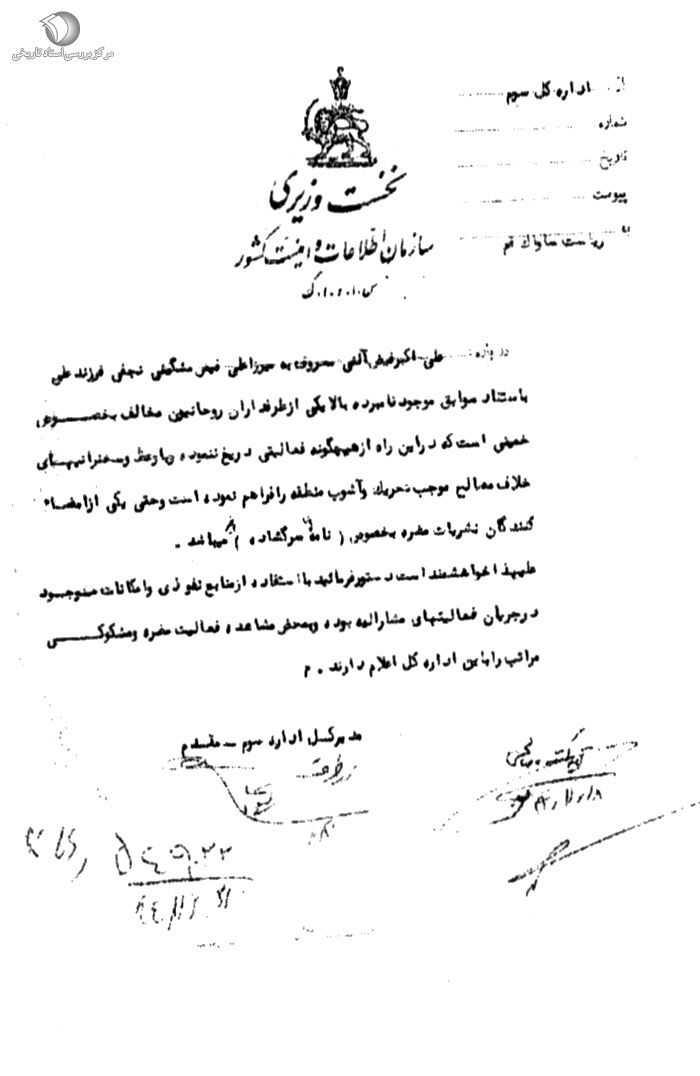 مرکز بررسی اسناد تاریخی
از اداره کل سوم
شماره
تاریخ
پیوست
به ریاست ساواک قم
نخست وزیری
سازمان اطلاعات و امنیت کشور
س.ا.و.ا.ک
درباره علی اکبر فیض آلنی معروف به میرزاعلی فیض مشگینی نجفی فرزند علی
باستناد سوابق موجود نامبرده بالا یکی از طرفداران روحانیون مخالف بخصوص
خمینی است که در این راه از هیچگونه فعالیتی دریغ ننموده و با وعظ و سخنرانیهای
خلاف مصالح موجب تحریک و آشوب منطقه را فراهم نموده است وحتی یکی از امضاء
کنندگان نشریات مضره بخصوص ( نامه سرگشاده ) میباشد .
علیهذا خواهشمند است دستور فرمائید با استفاده از منابع نفوذی و امکانات موجود
در جریان فعالیتهای مشارالیه بوده و بمحض مشاهده فعالیت مضره و مشکوکی
مراتب را باین اداره کل اعلام دارند . م
مدیر کل اداره سوم - مقدم